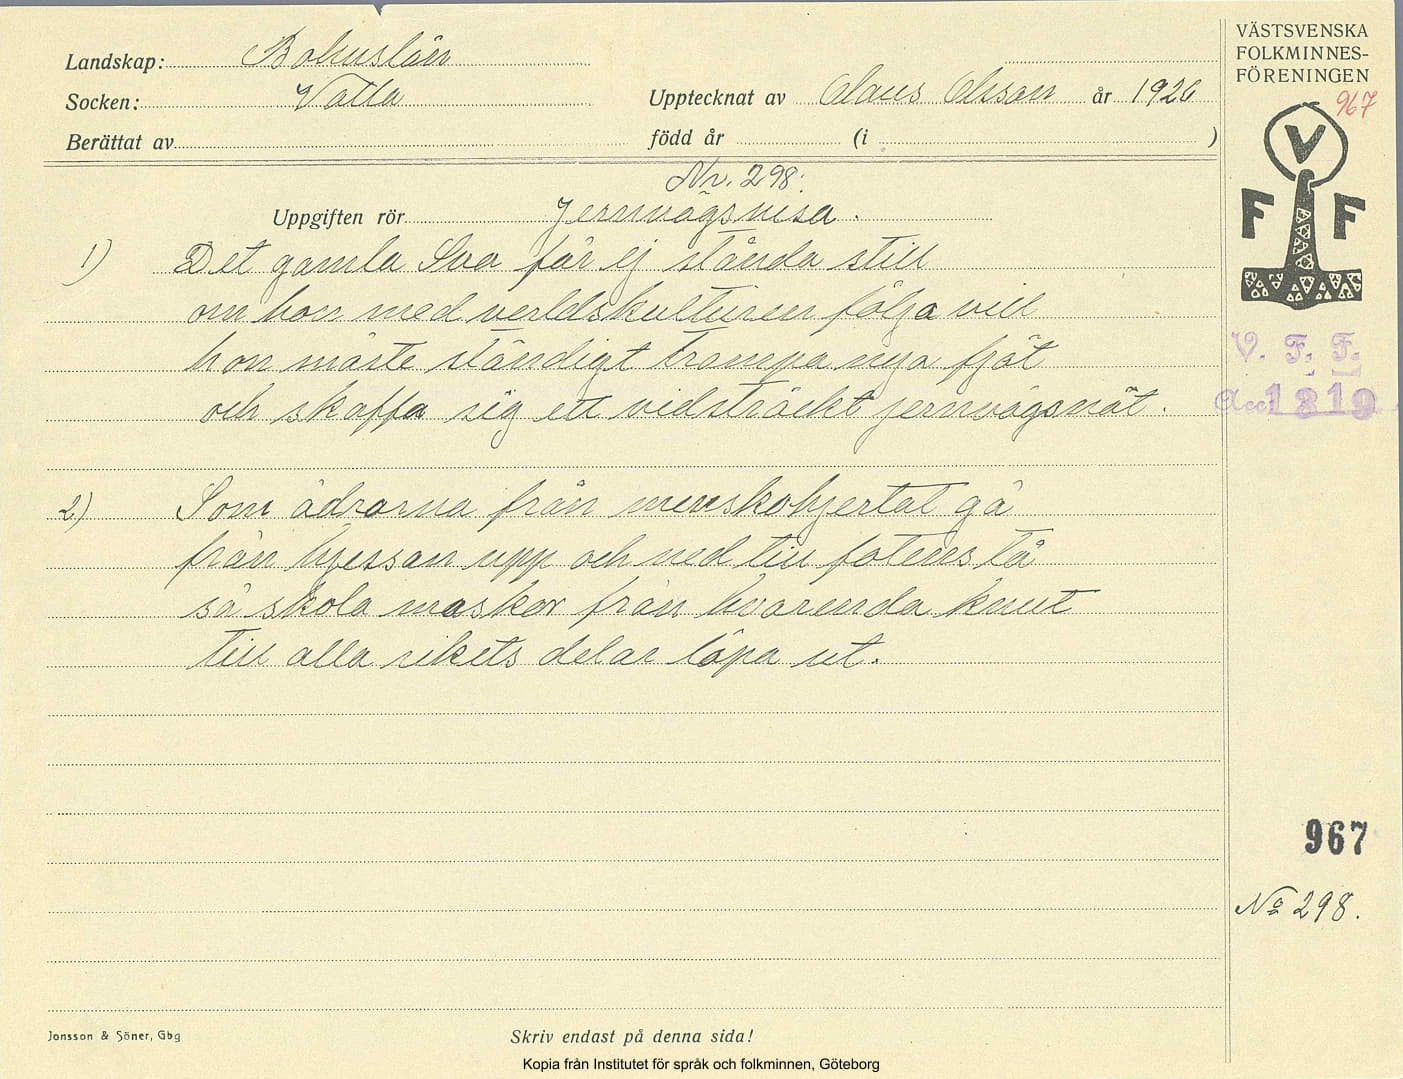 VÄSTSVENSKA
FOLKMINNES-
FÖRENINGEN
967
V
F F
V. F. F.
Acc 1319
Landskap: Bohuslän
Socken: Valla
Upptecknat av Claus Olsson år 1926
Berättat av
född år (i )
Nr. 298.
Uppgiften rör Jernvägsvisa.
1) Det gamla Sva får ej stånda still
om hon med verldskulturen följa vill
hon måste ständigt trampa nya fjät
och skaffa sig ett vidsträckt jernvägsnät.
2) Som ådrorna från menskohjertat gå
från hjessan upp och ned till fotens tå
så skola maskor från hvarenda knut
till alla rikets delar löpa ut.
967
No 298.
Jonsson & Söner, Gbg
Skriv endast på denna sida!
Kopia från Institutet för språk och folkminnen, Göteborg